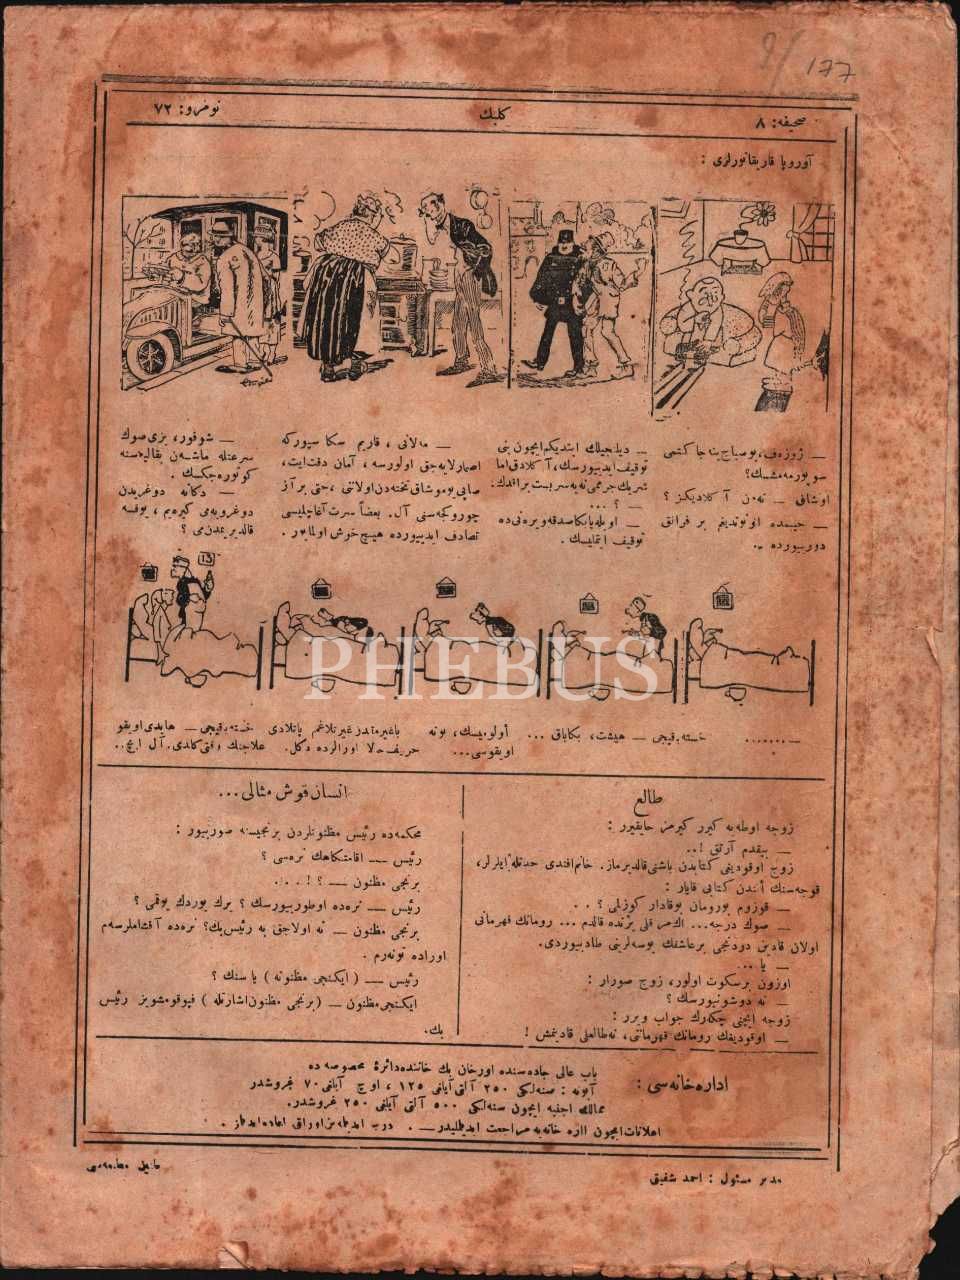 177
صحيفه: ٨
كلبك
نومرو: ٧٢
آوروپا قاريقاتورلری :
— ژوزه‌ف، بو صباح ينه جاكتمی
سوپورمه‌مشسك؟
اوشاق — نه‌دن آكلاديكز ؟
— جيبمده اونوتديغم بر فرانق
دوريبورده ..
— ديلنجيلك ايتديكم ايچون بنی
توقيف ايديبورسك، آكلادق اما
شريك جرممی نه‌يه سربست براقدك؟
— ؟ ...
— اويله يا بكا صدقه ويره‌نی ده
توقيف ايتمليسك .
— مه‌لانی ، قاريم سكا سپورگه
اصمارلايه‌جق اولورسه ، آمان دقت ايت،
صاپی يوموشاق تخته‌دن اولانی ، حتی بر آز
چوروكجه‌سنی آل . بعضاً سرت آغاچليسی
تصادف ايديبورده هيچ خوش اولمايور .
— شوفور، بزی صوك
سرعتله ماشه‌ن بقاليه‌سنه
كوتوره‌جكسك .
— دكانه دوغريدن
دوغرويه‌می كيره‌يم ، يوقسه
قالديريمدن‌می ؟
13
— .......
خسته‌باقيجی — هيشت، بكا باق ...
أولوميسك، بونه
اويقوسی...
باغيرمه‌مدن غيرتلاغم پاتلادی
حريف حالا اورالرده دكل .
خسته‌باقيجی — هايدی اويقو
علاجنك وقتی كلدی. آل ايچ..
PHEBUS
طالع
زوجه اوطه‌يه كيرر كيرمز حايقيرر :
— بيقدم آرتق !..
زوج اوقوديغی كتابدن باشنی قالديرماز. خانم افندی حدتله ايلرلر،
قوجه‌سنك ألندن كتابی قاپار :
— قوزوم بو رومان بو قادار كوزلمی ؟ . .
— صوك درجه... اك مراقلی يرنده قالدم ... رومانك قهرمانی
اولان قادين دردنجی بر عاشقك بوسه‌لرينی طاديبوردی.
— يا ...
اوزون بر سكوت اولور، زوج صورار :
— نه دوشونيورسك ؟
زوجه ايچنی چكه‌رك جواب ويرر :
— اوقوديغك رومانك قهرمانی، نه طالعلی قادينمش !
انسان قوش مثالی...
محكمه‌ده رئيس مظنونلردن برنجيسنه صوريبور :
رئيس — اقامتكاهك نره‌سی ؟
برنجی مظنون — ؟ ! . . .
رئيس — نره‌ده اوطوريبورسك ؟ يرك يوردك يوقمی ؟
برنجی مظنون — نه اولاجق به رئيس بك؟ نره‌ده آقشاملرسه‌م
اوراده تونه‌رم .
رئيس — ( ايكنجی مظنونه ) يا سنك ؟
ايكنجی مظنون — ( برنجی مظنونی اشارتله ) قپو قومشويز رئيس
بك.
اداره‌خانه‌سی :
باب عالی جاده‌سنده اورخان بك خاننده دائرهٔ مخصوصه‌ده
آبونه : سنه‌لكی ٢٥٠ آلتی آيلغی ١٢٥ ، اوچ آيلغی ٧٠ غروشدر
ممالك اجنبيه ايچون سنه‌لكی ٥٠٠ آلتی آيلغی ٢٥٠ غروشدر.
اعلانات ايچون اداره‌خانه‌يه مراجعت ايدلمليدر — . درج ايدلمه‌ين اوراق اعاده ايدلمز .
مدير مسئول : احمد شفيق